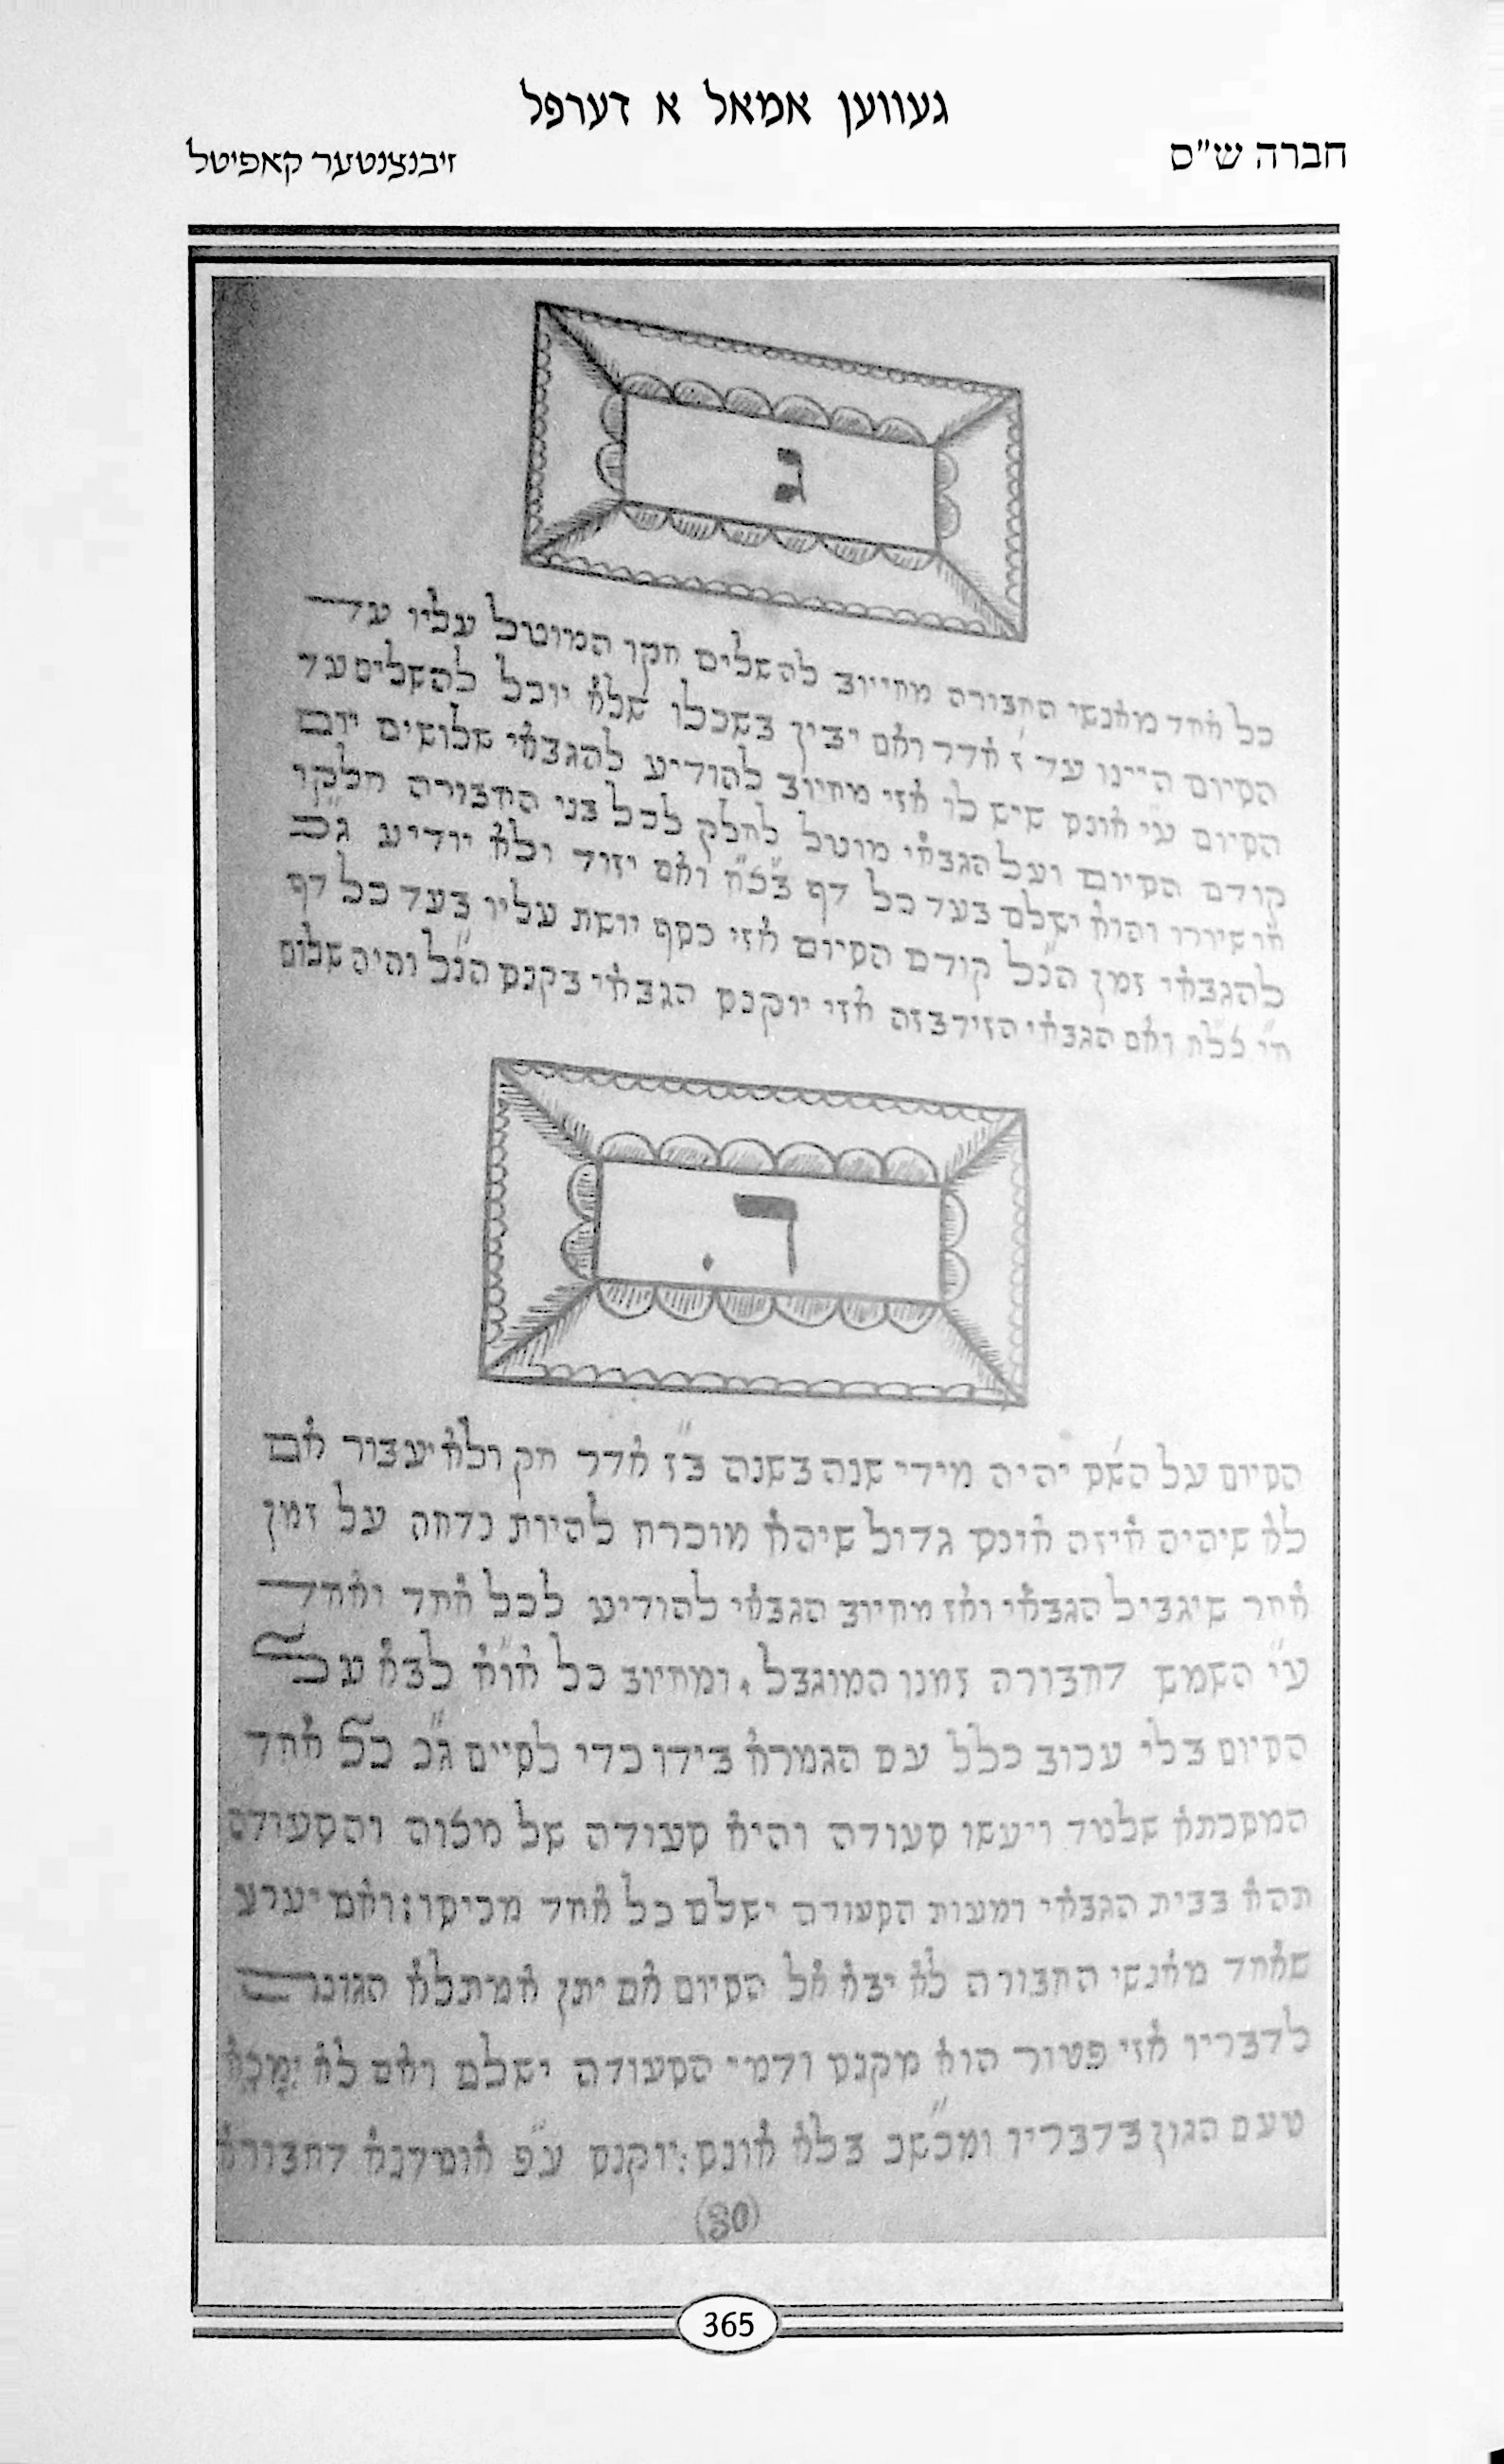 געווען אמאל א דערפל
חברה ש"ס
זיבנצנטער קאפיטל
ג
כל אחד מאנשי החבורה מחייוב להשלים חקו המוטל עליו עד
הסיום היינו עד ז' אדר ואם יבין בשכלו שלא יוכל להשלים עד
הסיום ע"י אונס שיש לו אזי מחיוב להודיע להגבאי שלושים יום
קודם הסיום ועל הגבאי מוטל לחלק לכל בני החבורה חלקו
או שיורו והוא ישלם בעד כל דף ואם יזיד ולא יודיע ג"כ
להגבאי זמן הנ"ל קודם הסיום אזי כסף יושת עליו בעד כל דף
ח"י ואם הגבאי הזיד בזה אזי יוקנס הגבאי בקנס הנ"ל והיה שלום
ד.
הסיום על הש"ס יהיה מידי שנה בשנה ב"ז אדר חק ולא יעבור אם
לא שיהיה איזה אונס גדול שיהא מוכרח להיות נדחה על זמן
אחר שיגביל הגבאי ואז מחיוב הגבאי להודיע לכל אחד ואחד
ע"י השמש דחבורה זמנו המוגבל, ומחיוב כל או"א לבא על
הסיום בלי עכוב כלל עם הגמרא בידו כדי לסיים ג"כ כל אחד
המסכתא שלמד ויעשו סעודה והיא סעודה של מצוה והסעודה
תהא בבית הגבאי ומעות הסעודה ישלם כל אחד מכיסו: ואם יערע
שאחד מאנשי החבורה לא יבא אל הסיום אם יתן אמתלא הגונה
לדבריו אזי פטור הוא מקנס ודמי הסעודה ישלם ואם לא ימצא
טעם הגון בדבריו ומכש"כ בלא אונס: יוקנס ע"פ אומדנא דחבורא
(30)
365